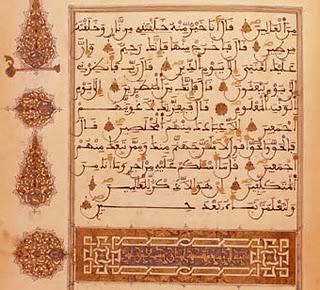 من العالين قال أنا خير منه خلقتني من نار وخلقته
من طين قال فاخرج منها فإنك رجيم وإن
عليك لعنتي إلى يوم الدين قال رب فأنظرني
إلى يوم يبعثون قال فإنك من المنظرين إلى يوم
الوقت المعلوم قال فبعزتك لأغوينهم
أجمعين إلا عبادك منهم المخلصين قال
فالحق والحق أقول لأملأن جهنم منك وممن تبعك منهم
أجمعين قل ما أسألكم عليه من أجر وما أنا من
المتكلفين إن هو إلا ذكر للعالمين
ولتعلمن نبأه بعد حين